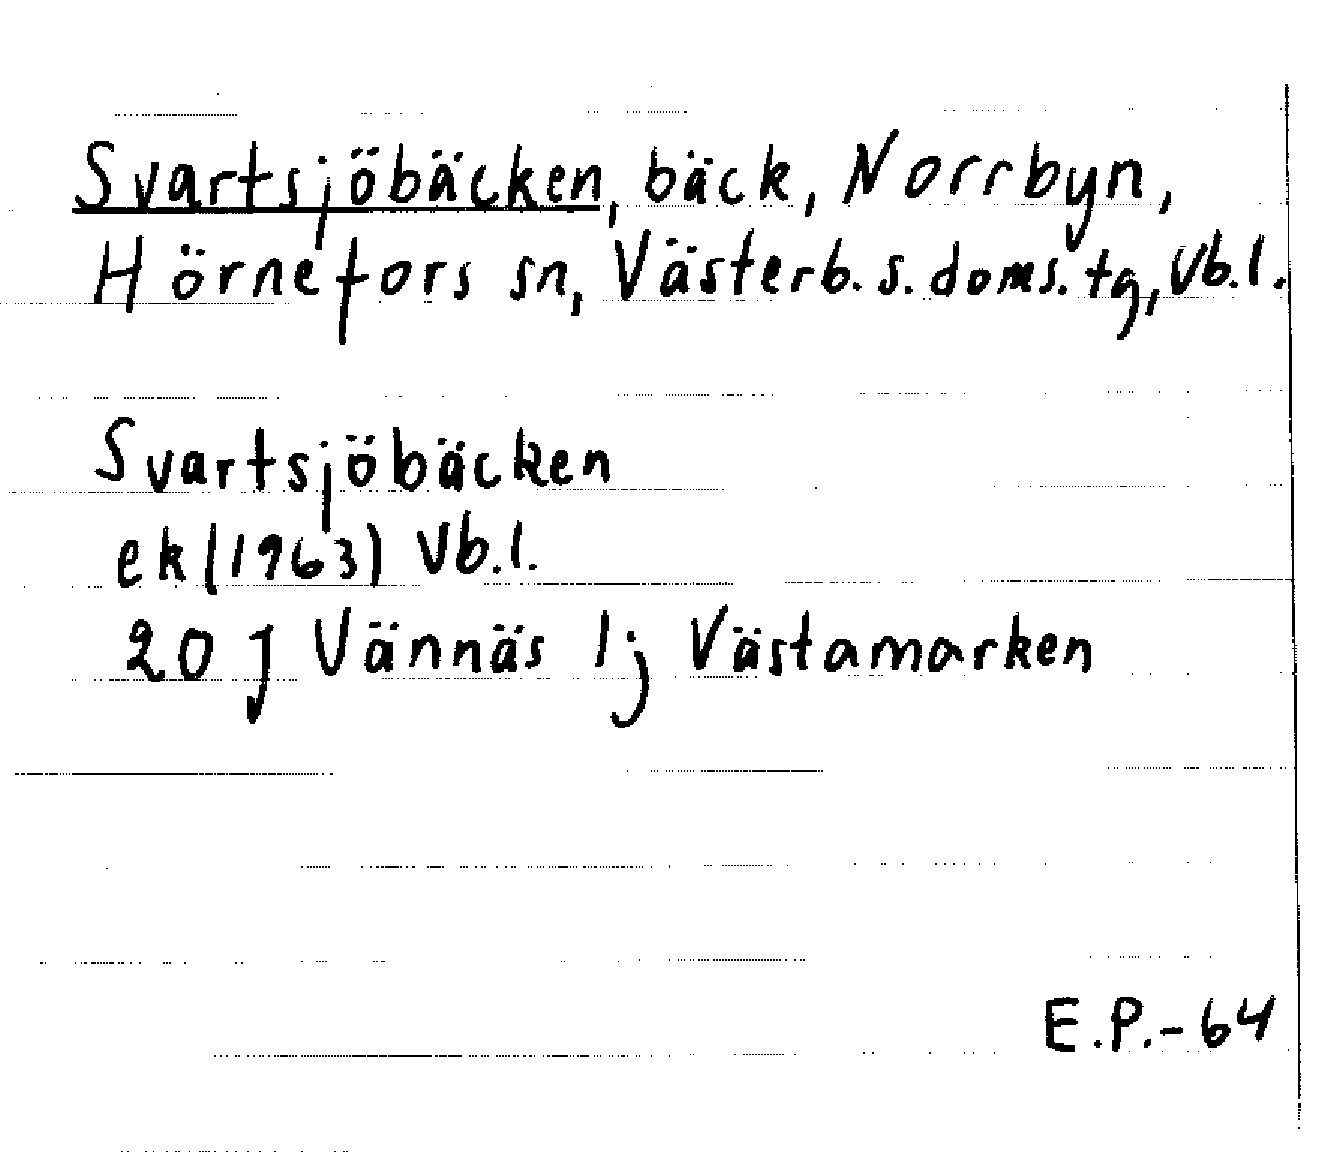 Svartsjöbäcken, bäck, Norrbyn,
Hörnefors sn, Västerb. s. doms. tg, Vb. l.
Svartsjöbäcken
ek (1963) Vb. l.
20 J Vännäs 1j Västamarken
E.P.-64